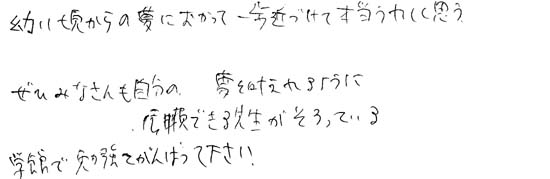 幼い頃からの夢にむかって一歩近づけて本当うれしく思う
ぜひみなさんも自分の 夢を叶えれるように
信頼できる先生がそろっている
学館で勉強てがんばって下さい!